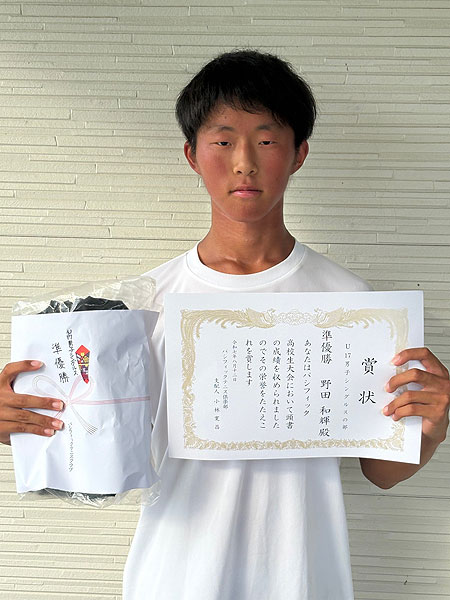 賞状
U17男子シングルスの部
準優勝 野田 和輝 殿
あなたはパシフィック
高校生大会において頭書
の成績を収められました
のでその栄誉をたたえこ
れを賞します
パシフィックテニス倶楽部
支配人 小林 実 昌
準優勝